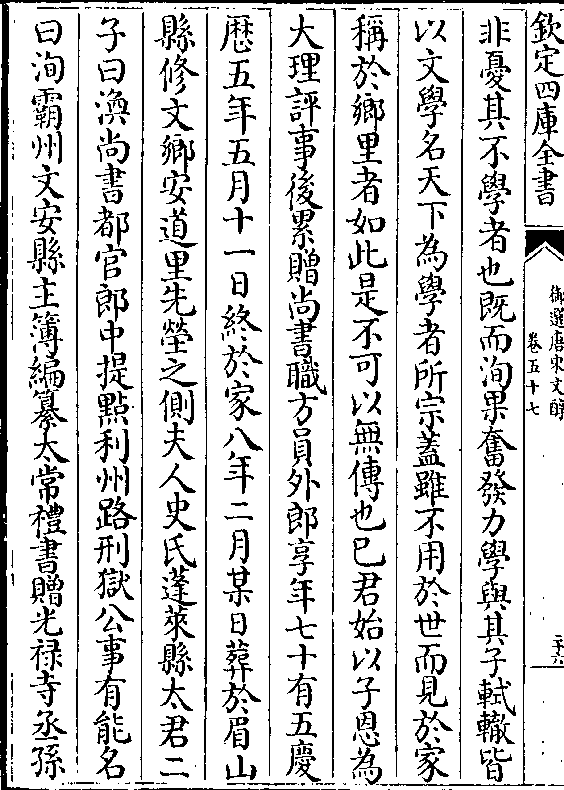 欽定四庫全書
御選唐宋文醇
卷五十七
二十六
非憂其不學者也既而洵果奮發力學與其子軾轍皆
以文學名天下為學者所宗蓋雖不用於世而見於家
稱於鄉里者如此是不可以無傳也已君始以子恩為
大理評事後累贈尚書職方員外郎享年七十有五慶
厯五年五月十一日終於家八年二月某日葬於眉山
縣修文鄉安道里先塋之側夫人史氏蓬萊縣太君二
子曰渙尚書都官郎中提點利州路刑獄公事有能名
曰洵霸州文安縣主簿編纂太常禮書贈光禄寺丞孫